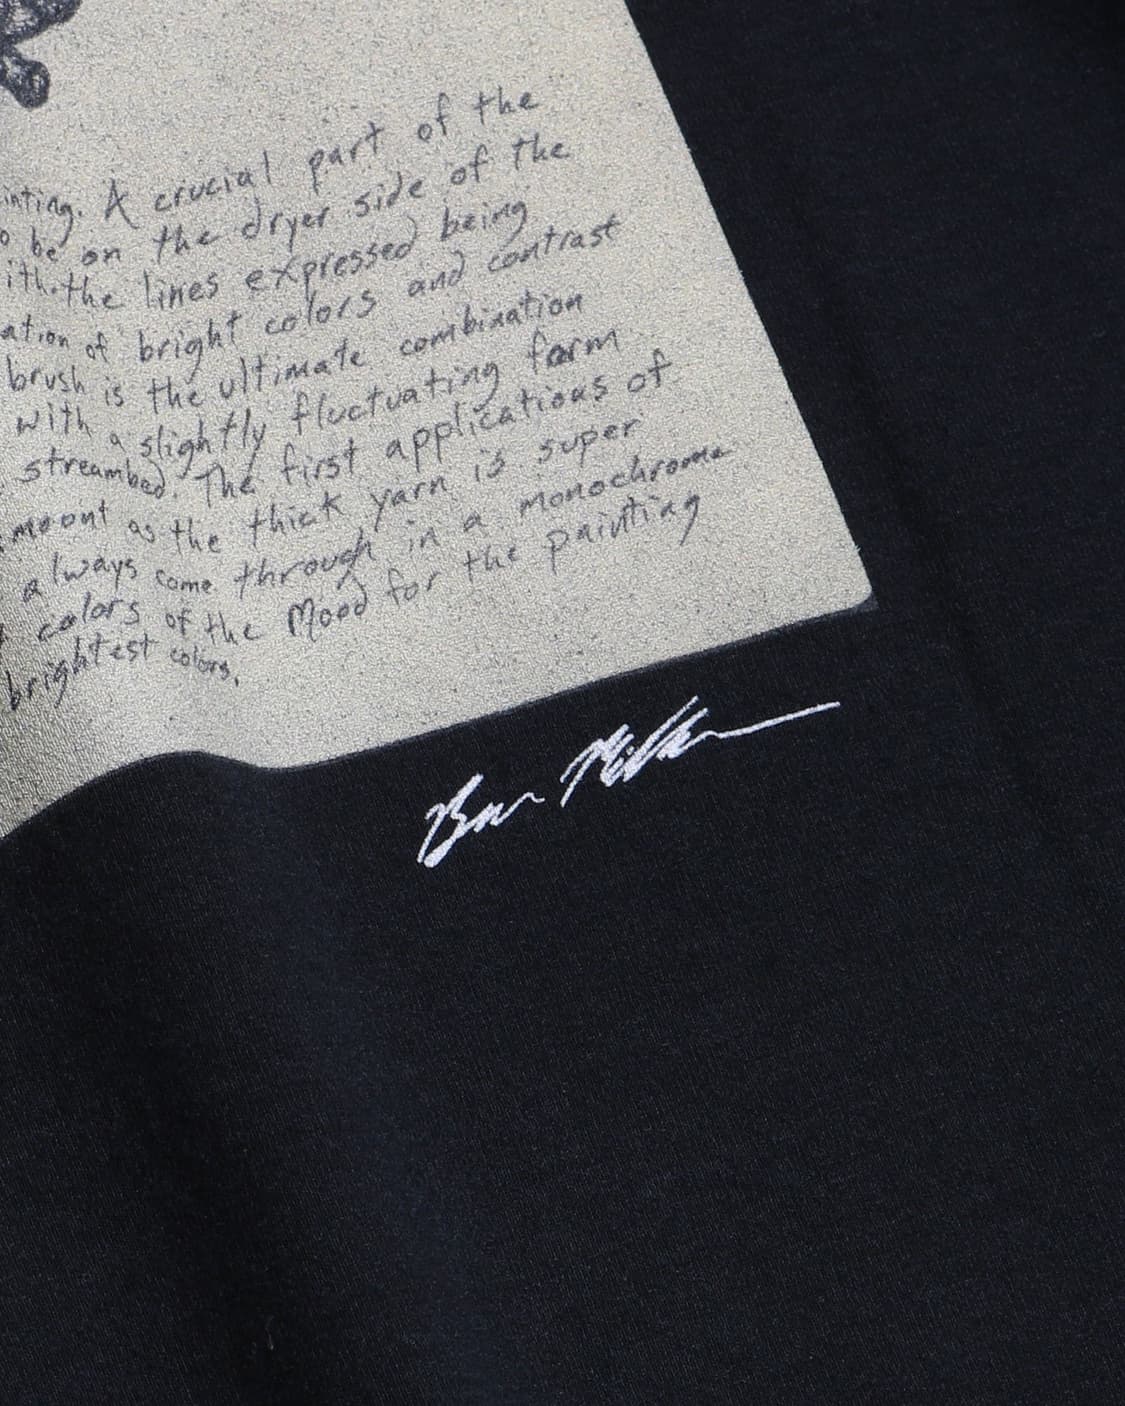 inting. A crucial part of the
o be on the dryer side of the
ith the lines expressed being
ation of bright colors and contrast
brush is the ultimate combination
with a slightly fluctuating form
streambed. The first applications of
meant as the thick yarn is super
always come through in a monochrome
colors of the Mood for the painting
brightest colors.
Ben Miller